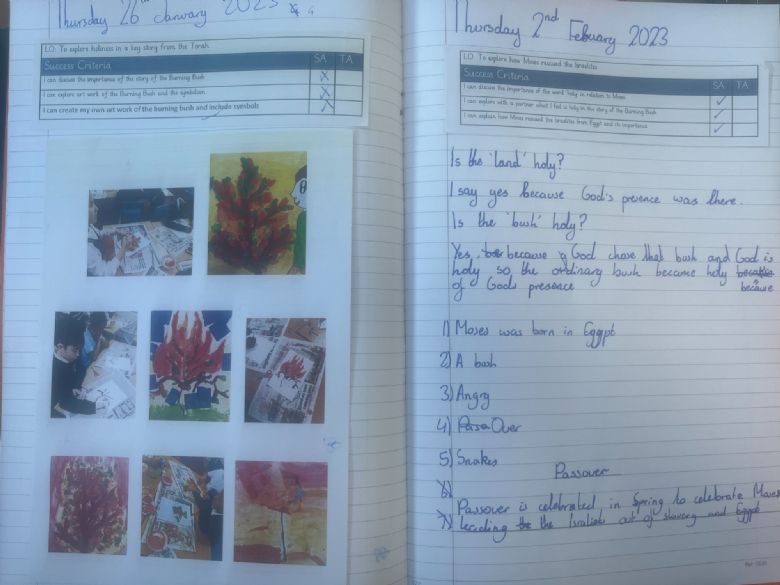 Thursday 26th January 2023
LO: To explore holiness in a key story from the Torah
Success Criteria SA TA
I can discuss the importance of the story of the Burning Bush
I can explore art work of the Burning Bush and the symbolism
I can create my own art work of the burning bush and include symbols
Thursday 2nd Febuary 2023
LO: To explore how Moses rescued the Israelites
Success Criteria SA TA
I can discuss the importance of the word 'holy' in relation to Moses
I can explore with a partner what I feel is holy in the story of the Burning Bush
I can explain how Moses rescued the Israelites from Egypt and its importance
Is the 'land' holy?
I say yes because God's presence was there.
Is the 'bush' holy?
Yes, because God chose that bush and God is
holy so the ordinary bush became holy because
of God's presence because
1) Moses was born in Egypt
2) A bush
3) Angry
4) PassOver
5) Snakes
Passover
6)
Passover is celebrated in Spring to celebrate Moses
7) leading the the Israliets out of slavery and Egypt